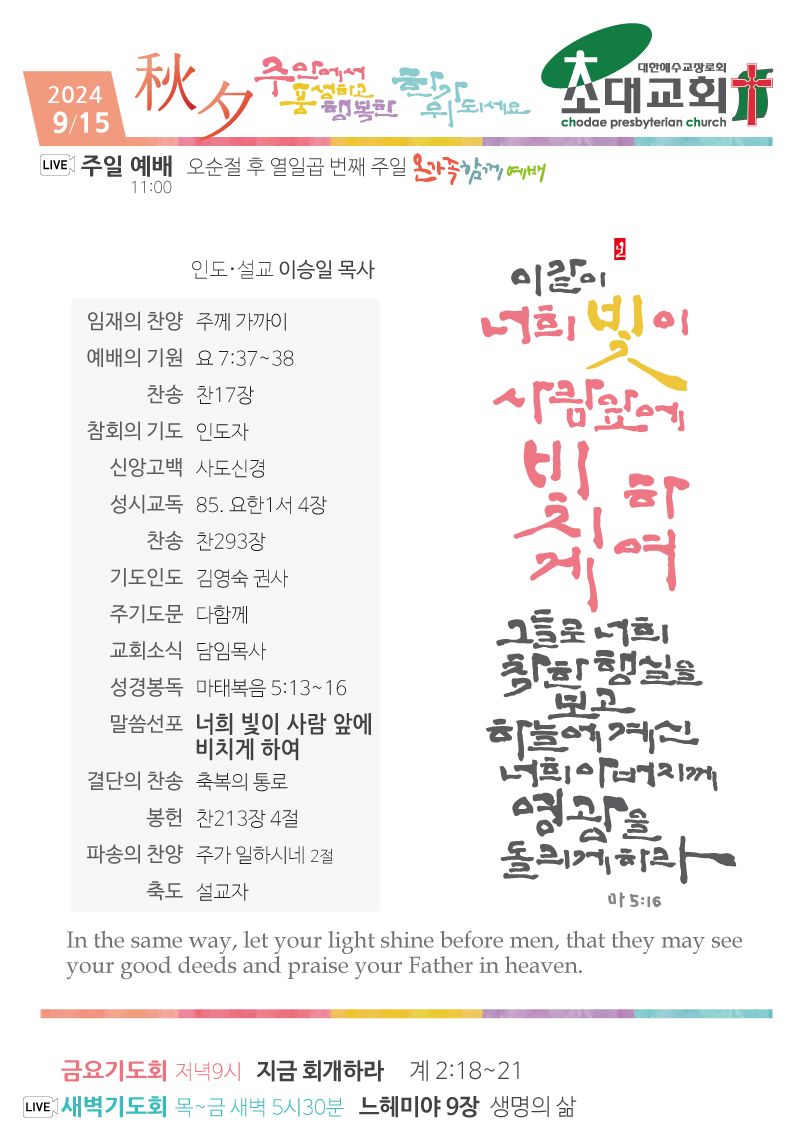 2024
9/15
秋夕
주안에서
풍성하고
행복한
한가
위되세요
대한예수교장로회
초대교회
chodae presbyterian church
LIVE 주일 예배 오순절 후 열일곱 번째 주일 온가족함께예배
11:00
인도·설교 이승일 목사
임재의 찬양 주께 가까이
예배의 기원 요 7:37~38
찬송 찬17장
참회의 기도 인도자
신앙고백 사도신경
성시교독 85. 요한1서 4장
찬송 찬293장
기도인도 김영숙 권사
주기도문 다함께
교회소식 담임목사
성경봉독 마태복음 5:13~16
말씀선포 너희 빛이 사람 앞에
비치게 하여
결단의 찬송 축복의 통로
봉헌 찬213장 4절
파송의 찬양 주가 일하시네 2절
축도 설교자
이같이
너희 빛이
사람앞에
비치게
하여
그들로 너희
착한 행실을
보고
하늘에 계신
너희 아버지께
영광을
돌리게하라
마 5:16
In the same way, let your light shine before men, that they may see
your good deeds and praise your Father in heaven.
금요기도회 저녁9시 지금 회개하라 계 2:18~21
LIVE 새벽기도회 목~금 새벽 5시30분 느헤미야 9장 생명의 삶